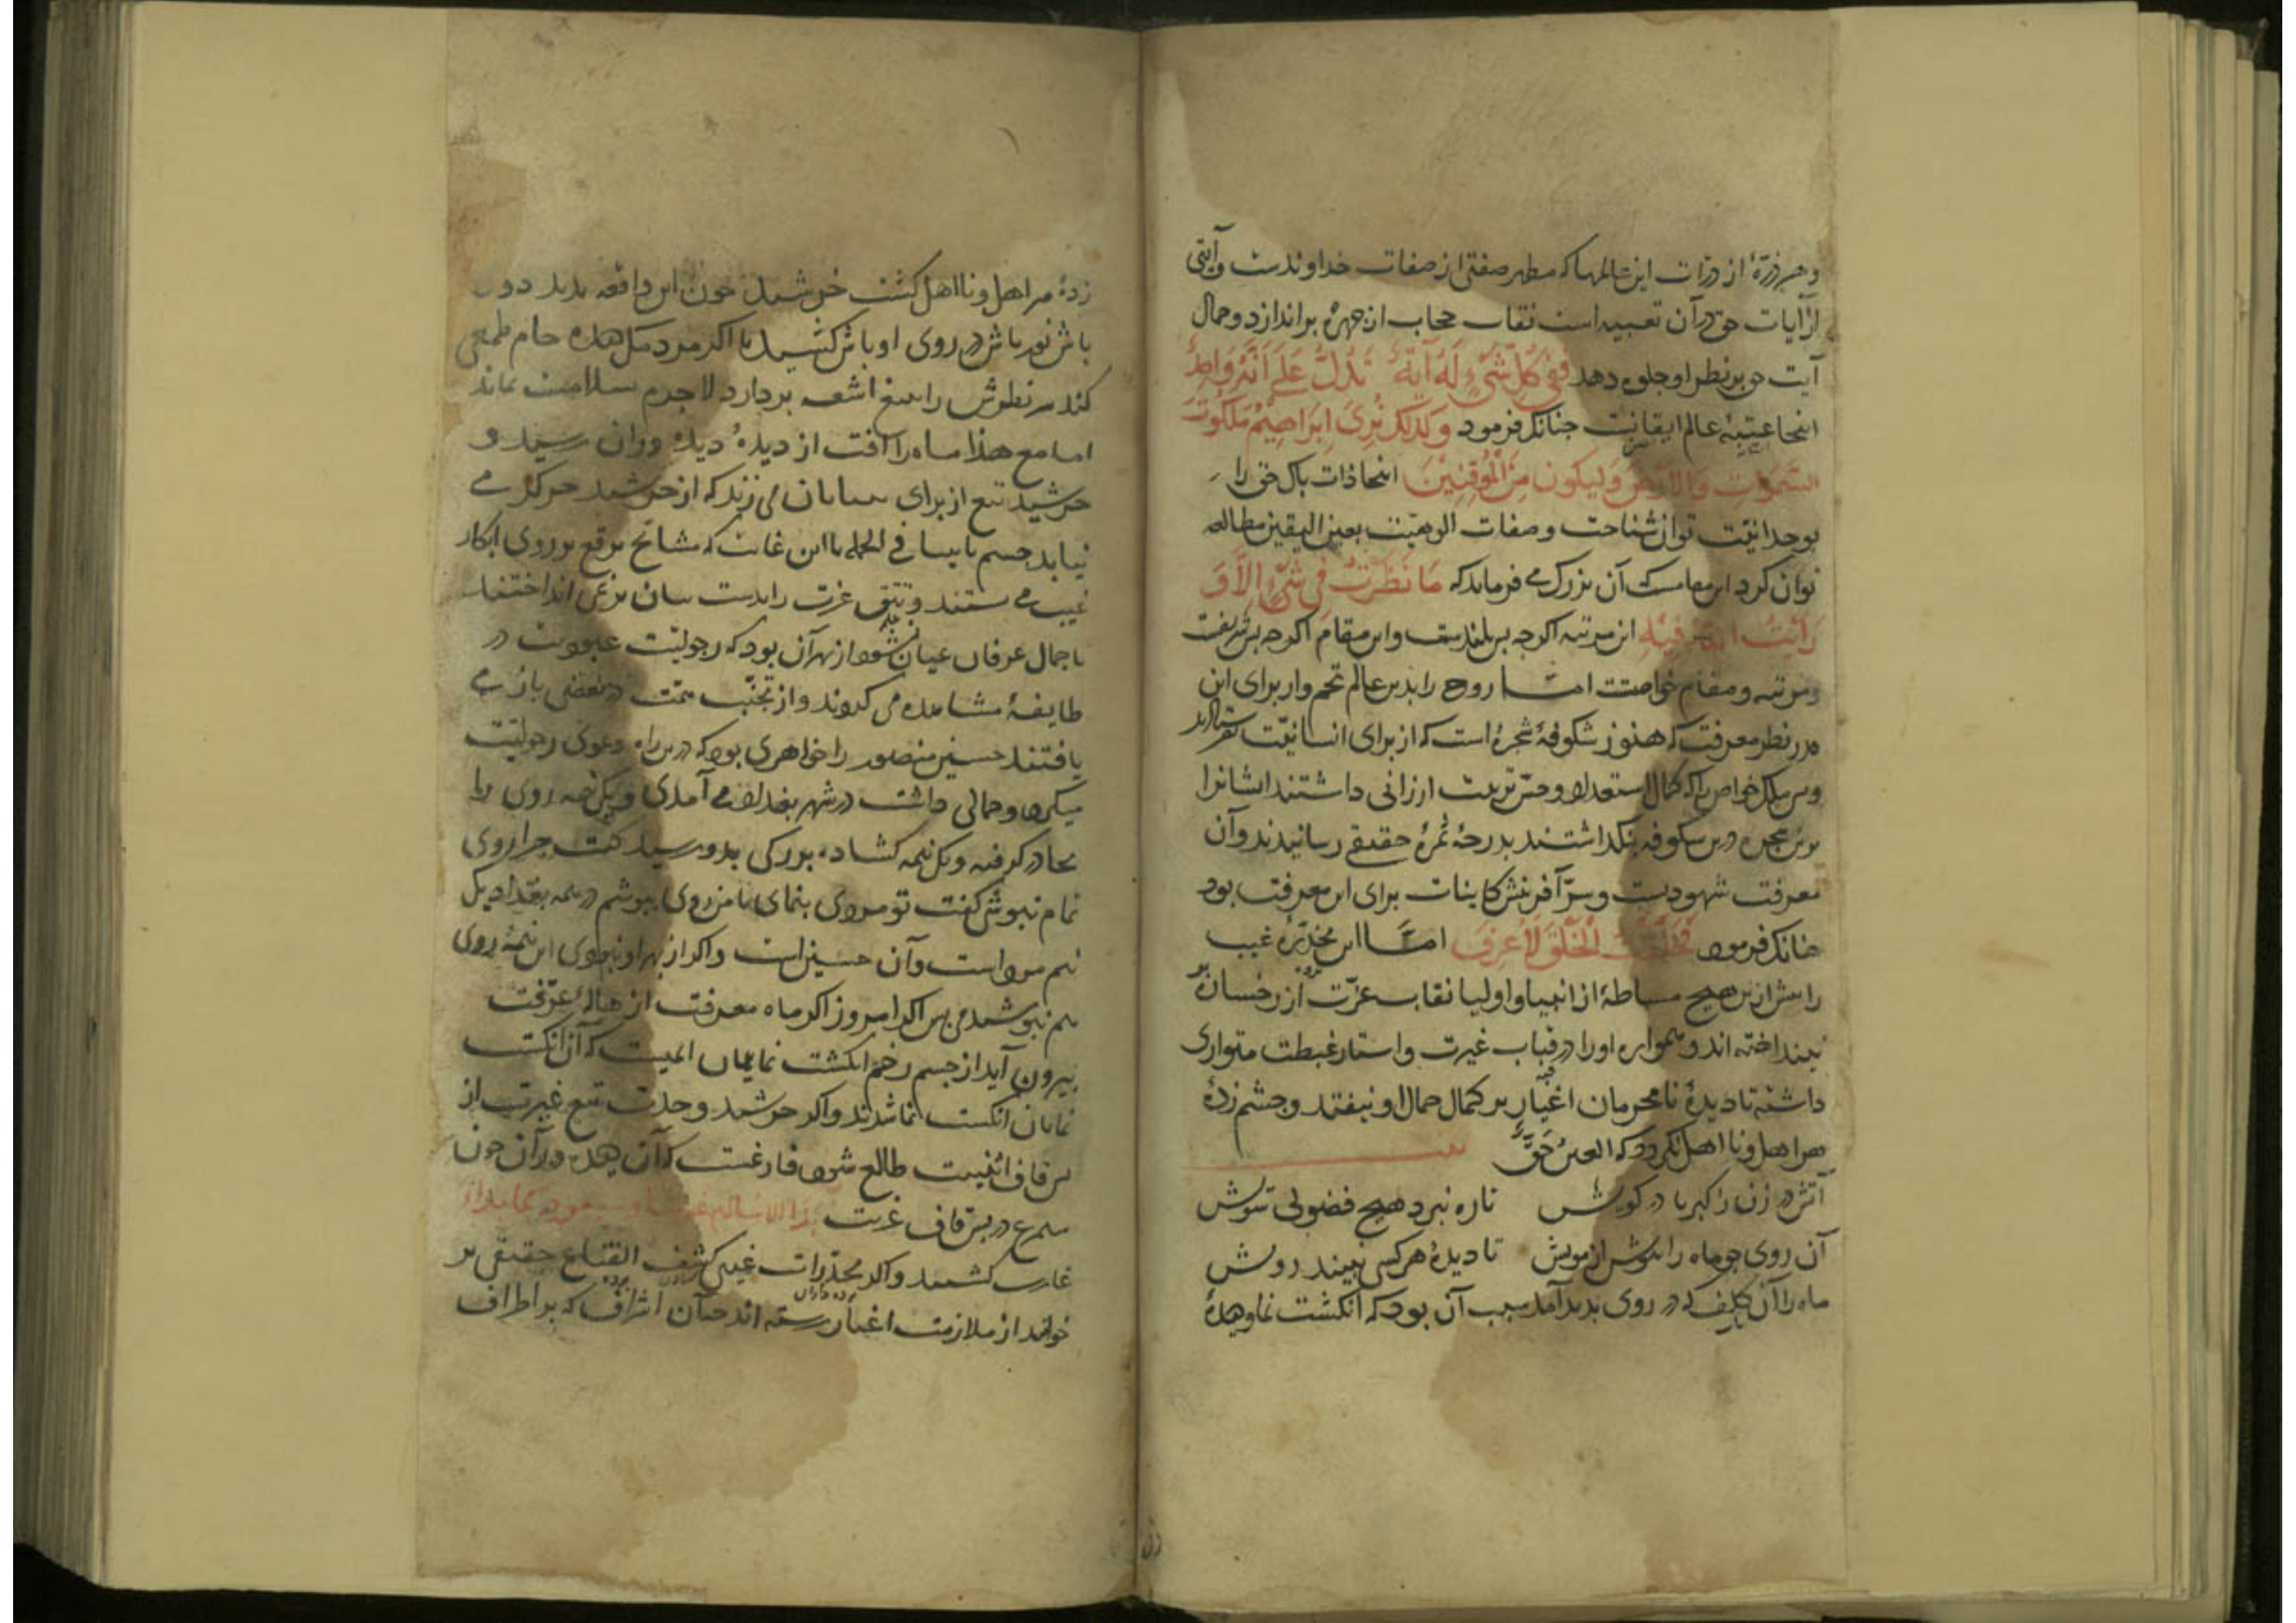 و هر ذرّهٔ از ذرات این عالمها که مظهر صفتی از صفات خداوندست و آیتی
از آیات حق در آن تعبیه است نقاب حجاب از چهره براندازد و جمال
آیت حق بر نظر او جلوه دهد فَفِی کُلِّ شَیْءٍ لَهُ آیَةٌ تَدُلُّ عَلَی أَنَّهُ وَاحِدٌ
اینجا عتبهٔ عالم ایقانست چنانک فرمود وَکَذَلِکَ نُرِی إِبْرَاهِیمَ مَلَکُوتَ
السَّمَوَاتِ وَالْأَرْضِ وَلِیَکُونَ مِنَ الْمُوقِنِینَ اینجا ذات پاک حق را
بوحدانیّت توان شناخت و صفات الوهیّت بعین الیقین مطالعه
توان کرد این مقامست که آن بزرگ می فرماید که مَا نَظَرْتُ فِی شَیْءٍ إِلَّا وَ
رَأَیْتُ اللهَ فِیهِ این مرتبه اگرچه بس بلندست و این مقام اگرچه بس شریفست
و مرتبه و مقام خواصّست امّا روح را بدین عالم تخم وار برای این
قدر نظر معرفت که هنوز شکوفهٔ شجرهٔ است که از برای انسانیّت نفرستادند
خواص را که کمال استعداد و حسن تربیت ارزانی داشتند ایشانرا
برین شجره درین شکوفه بنگذاشتند بدرجهٔ ثمرهٔ حقیقی رسانیدند و آن
معرفت شهودیست و سرّ آفرینش کاینات برای این معرفت بود
چنانک فرمود فَخَلَقْتُ الْخَلْقَ لِأُعْرَفَ امّا این مخدّرهٔ غیب
را پیش ازین هیچ مشاطهٔ از انبیا و اولیا نقاب عزّت از رخسار
نینداخته اند و همواره او را در قباب غیرت و استار غبطت متواری
داشته تا دیدهٔ نامحرمان اغیار بر کمال جمال او نیفتد و چشم زدهٔ
هر اهل و نا اهل نگردد که العین حَقٌّ
آتش در زن ز کبریا در کویش تا ره نبرد هیچ فضولی سویش
آن روی چو ماه را بپوش از مویش تا دیدهٔ هر کسی نبیند رویش
ماه را آن کلف که در روی پدید آمد سبب آن بود که انگشت نمای و دیدهٔ
زدهٔ هر اهل و نا اهل گشت خورشید چون این واقعه بدید دور
باش نور باش در روی اوباش کشید تا اگر مردمک دیده خام طمعی
کند سر نظرش را بتیغ اشعه بردارد لاجرم سلامت ماند
اما مع هذا ماه را آفت از دیدهٔ دیده وران رسید و
خورشید تیغ از برای می زند که از خورشید جز گرمی
نیابد چشم نابینا فی الجمله تا این غایت که مشایخ برقع بر روی ابکار
غیب می بستند و تتق عزت را بدست بیان بر نمی انداختند
تا جمال عرفان عیان نشود از بهر آن بود که رجولیّت عبودیت در
طایفهٔ مشاهده می کردند و از همّت در بعضی باز می
یافتند حسین منصور را خواهری بود که درین راه دعوی رجولیّت
میکرد و جمالی داشت در شهر بغداد می آمدی و یک نیمه روی را
بچادر گرفته و یک نیمه گشاده بزرگی بدو رسید گفت چرا روی
تمام نپوشی گفت تو مردی بنمای تا من روی بپوشم در همه بغداد یک
نیم مرد است و آن حسین است و اگر از بهر او نبودی این نیمهٔ روی
هم نپوشیدمی پس اگر امروز اگر ماه معرفت از هالهٔ عزّت
بیرون آید از چشم زخم انگشت نمایان ایمنست که آن انگشت
نمایان انگشت نما شدند و اگر خورشید وحدت تیغ غیرت از
پس قاف اثنینیت طالع شود فارغست که آن دیده وران چون
سیمرغ در پس قاف عزلت
کشیدند و اگر مخدّرات غیب کشف القناع حقیقی بر
خوانند از ملازمت اغیار رسته اند چه آن اشراف که بر اطراف